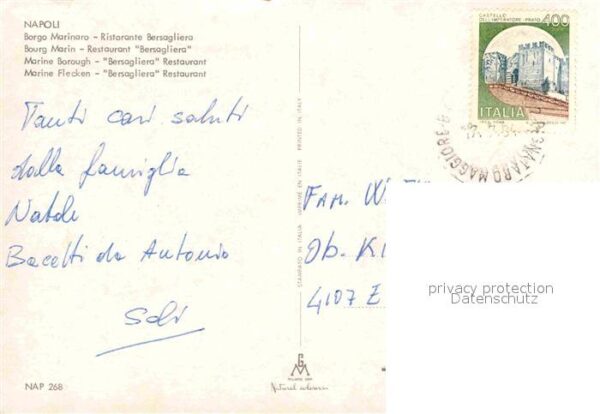 NAPOLI
Borgo Marinaro - Ristorante Bersagliera
Bourg Marin - Restaurant "Bersagliera"
Marine Borough - "Bersagliera" Restaurant
Marine Flecken - "Bersagliera" Restaurant
Tanti cari saluti
dalla famiglia
Natale
Bacetti da Antonio
NAP 268
STAMPATO IN ITALIA IMPRIMÉ EN ITALIE PRINTED IN ITALY
CASTELLO
DELL'IMPERATORE PRATO
400
ITALIA
MAGGIORE
FAM.
Ob.
4107 E
privacy protection
Datenschutz